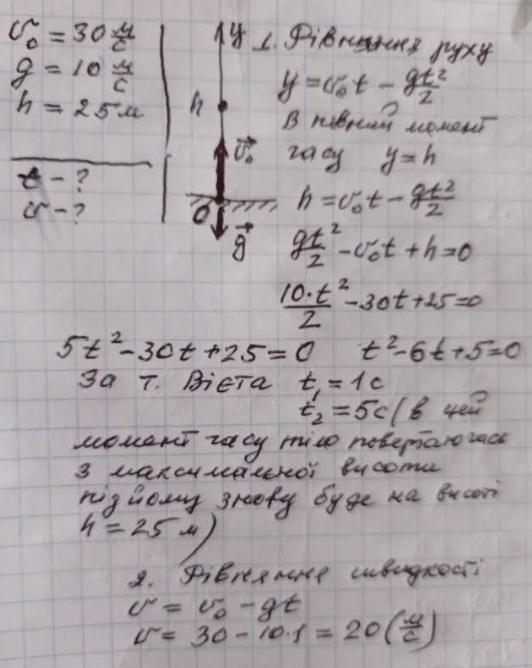 v₀ = 30 м/с
g = 10 м/с
h = 25 м
t - ?
v - ?
y
h
v⃗₀
0
g⃗
1. Рівняння руху
y = v₀t - gt²/2
В певний момент
часу y = h
h = v₀t - gt²/2
gt²/2 - v₀t + h = 0
10·t²/2 - 30t + 25 = 0
5t² - 30t + 25 = 0 t² - 6t + 5 = 0
За т. Вієта t₁ = 1с
t₂ = 5с (в цей
момент часу тіло повертаючись
з максимальної висоти
підйому знову буде на висоті
h = 25 м)
2. Рівняння швидкості
v = v₀ - gt
v = 30 - 10·1 = 20 (м/с)